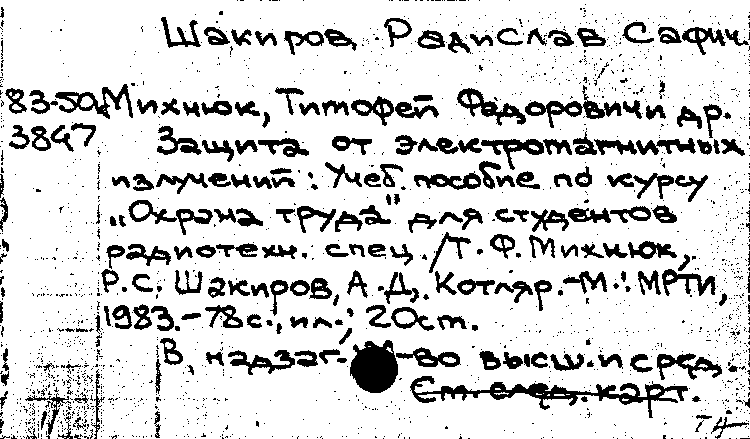 Шакиров, Радислав Сафич.
83-50. Михнюк, Тимофей Федорович и др.
3847 Защита от электромагнитных
излучений : Учеб. пособие по курсу
„Охрана труда" для студентов
радиотехн. спец. /Т. Ф. Михнюк,
Р.С. Шакиров, А.Д. Котляр.-М.: МРТИ,
1983.-78с., ил.; 20см.
В. надзаг. М-во высш. и сред.
См. след. карт.